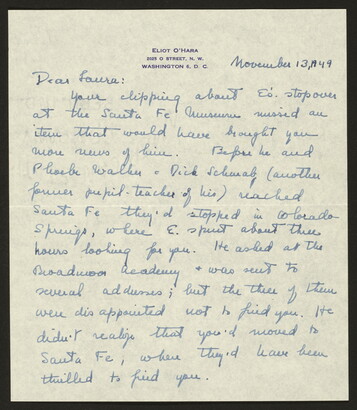 ELIOT O'HARA
3025 O STREET, N. W.
WASHINGTON 6, D. C.
November 13, 1949
Dear Laura:
Your clipping about E's. stopover
at the Santa Fe Museum missed an
item that would have brought you
more news of him. Before he and
Phoebe Walker & Dick Schmalz (another
former pupil-teacher of his) reached
Santa Fe they'd stopped in Colorado
Springs, where E. spent about three
hours looking for you. He asked at the
Broadmoor Academy & was sent to
several addresses; but the three of them
were disappointed not to find you. He
didn't realize that you'd moved to
Santa Fe, where they'd have been
thrilled to find you.